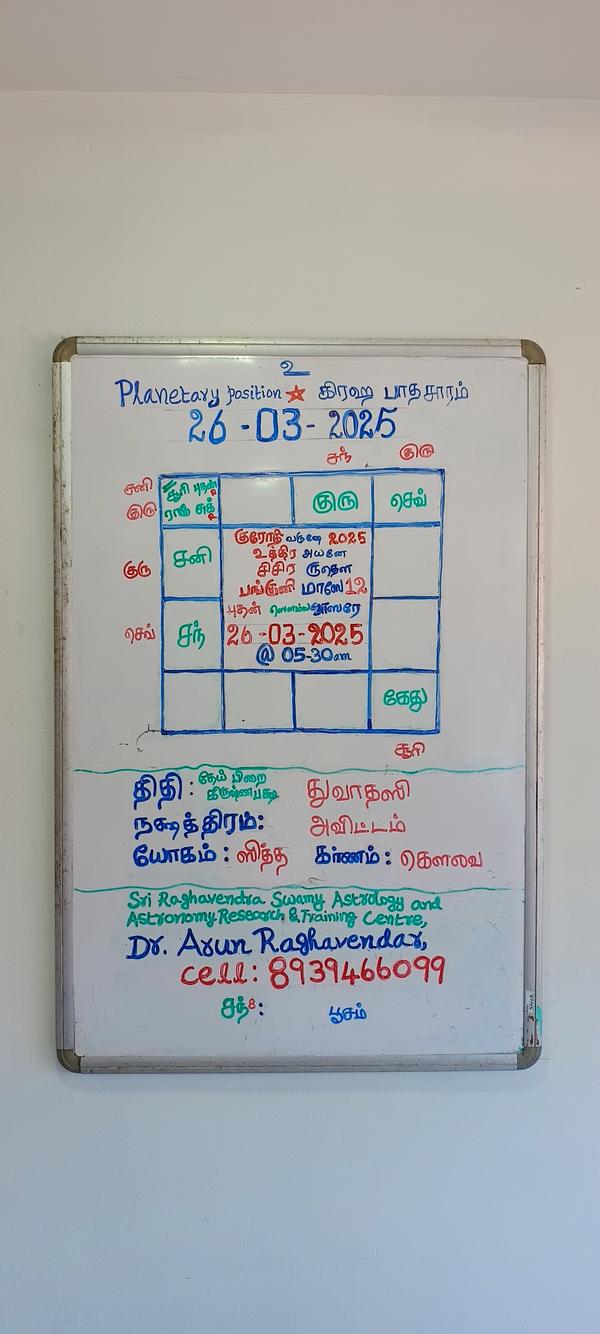 உ
Planetary position ☆ கிரஹ பாதசாரம்
26-03-2025
சந் குரு
சனி சூரி புதன் வ
குரு ராகு சுக் வ குரு செவ்
குரோதி வருஷே 2025
உத்திர அயனே
குரு சனி சிசிர ருதௌ
பங்குனி மாஸே 12
புதன் ஸௌம்ய வாஸரே
செவ் சந் 26-03-2025
@ 05-30am
கேது
சூரி
திதி: தேய் பிறை துவாதஸி
கிருஷ்ணபக்ஷ
நக்ஷத்திரம்: அவிட்டம்
யோகம்: ஸித்த கர்ணம்: கௌலவ
Sri Raghavendra Swamy Astrology and
Astronomy Research & Training Centre,
Dr. Arun Raghavendar,
cell: 8939466099
சந் 8: பூசம்